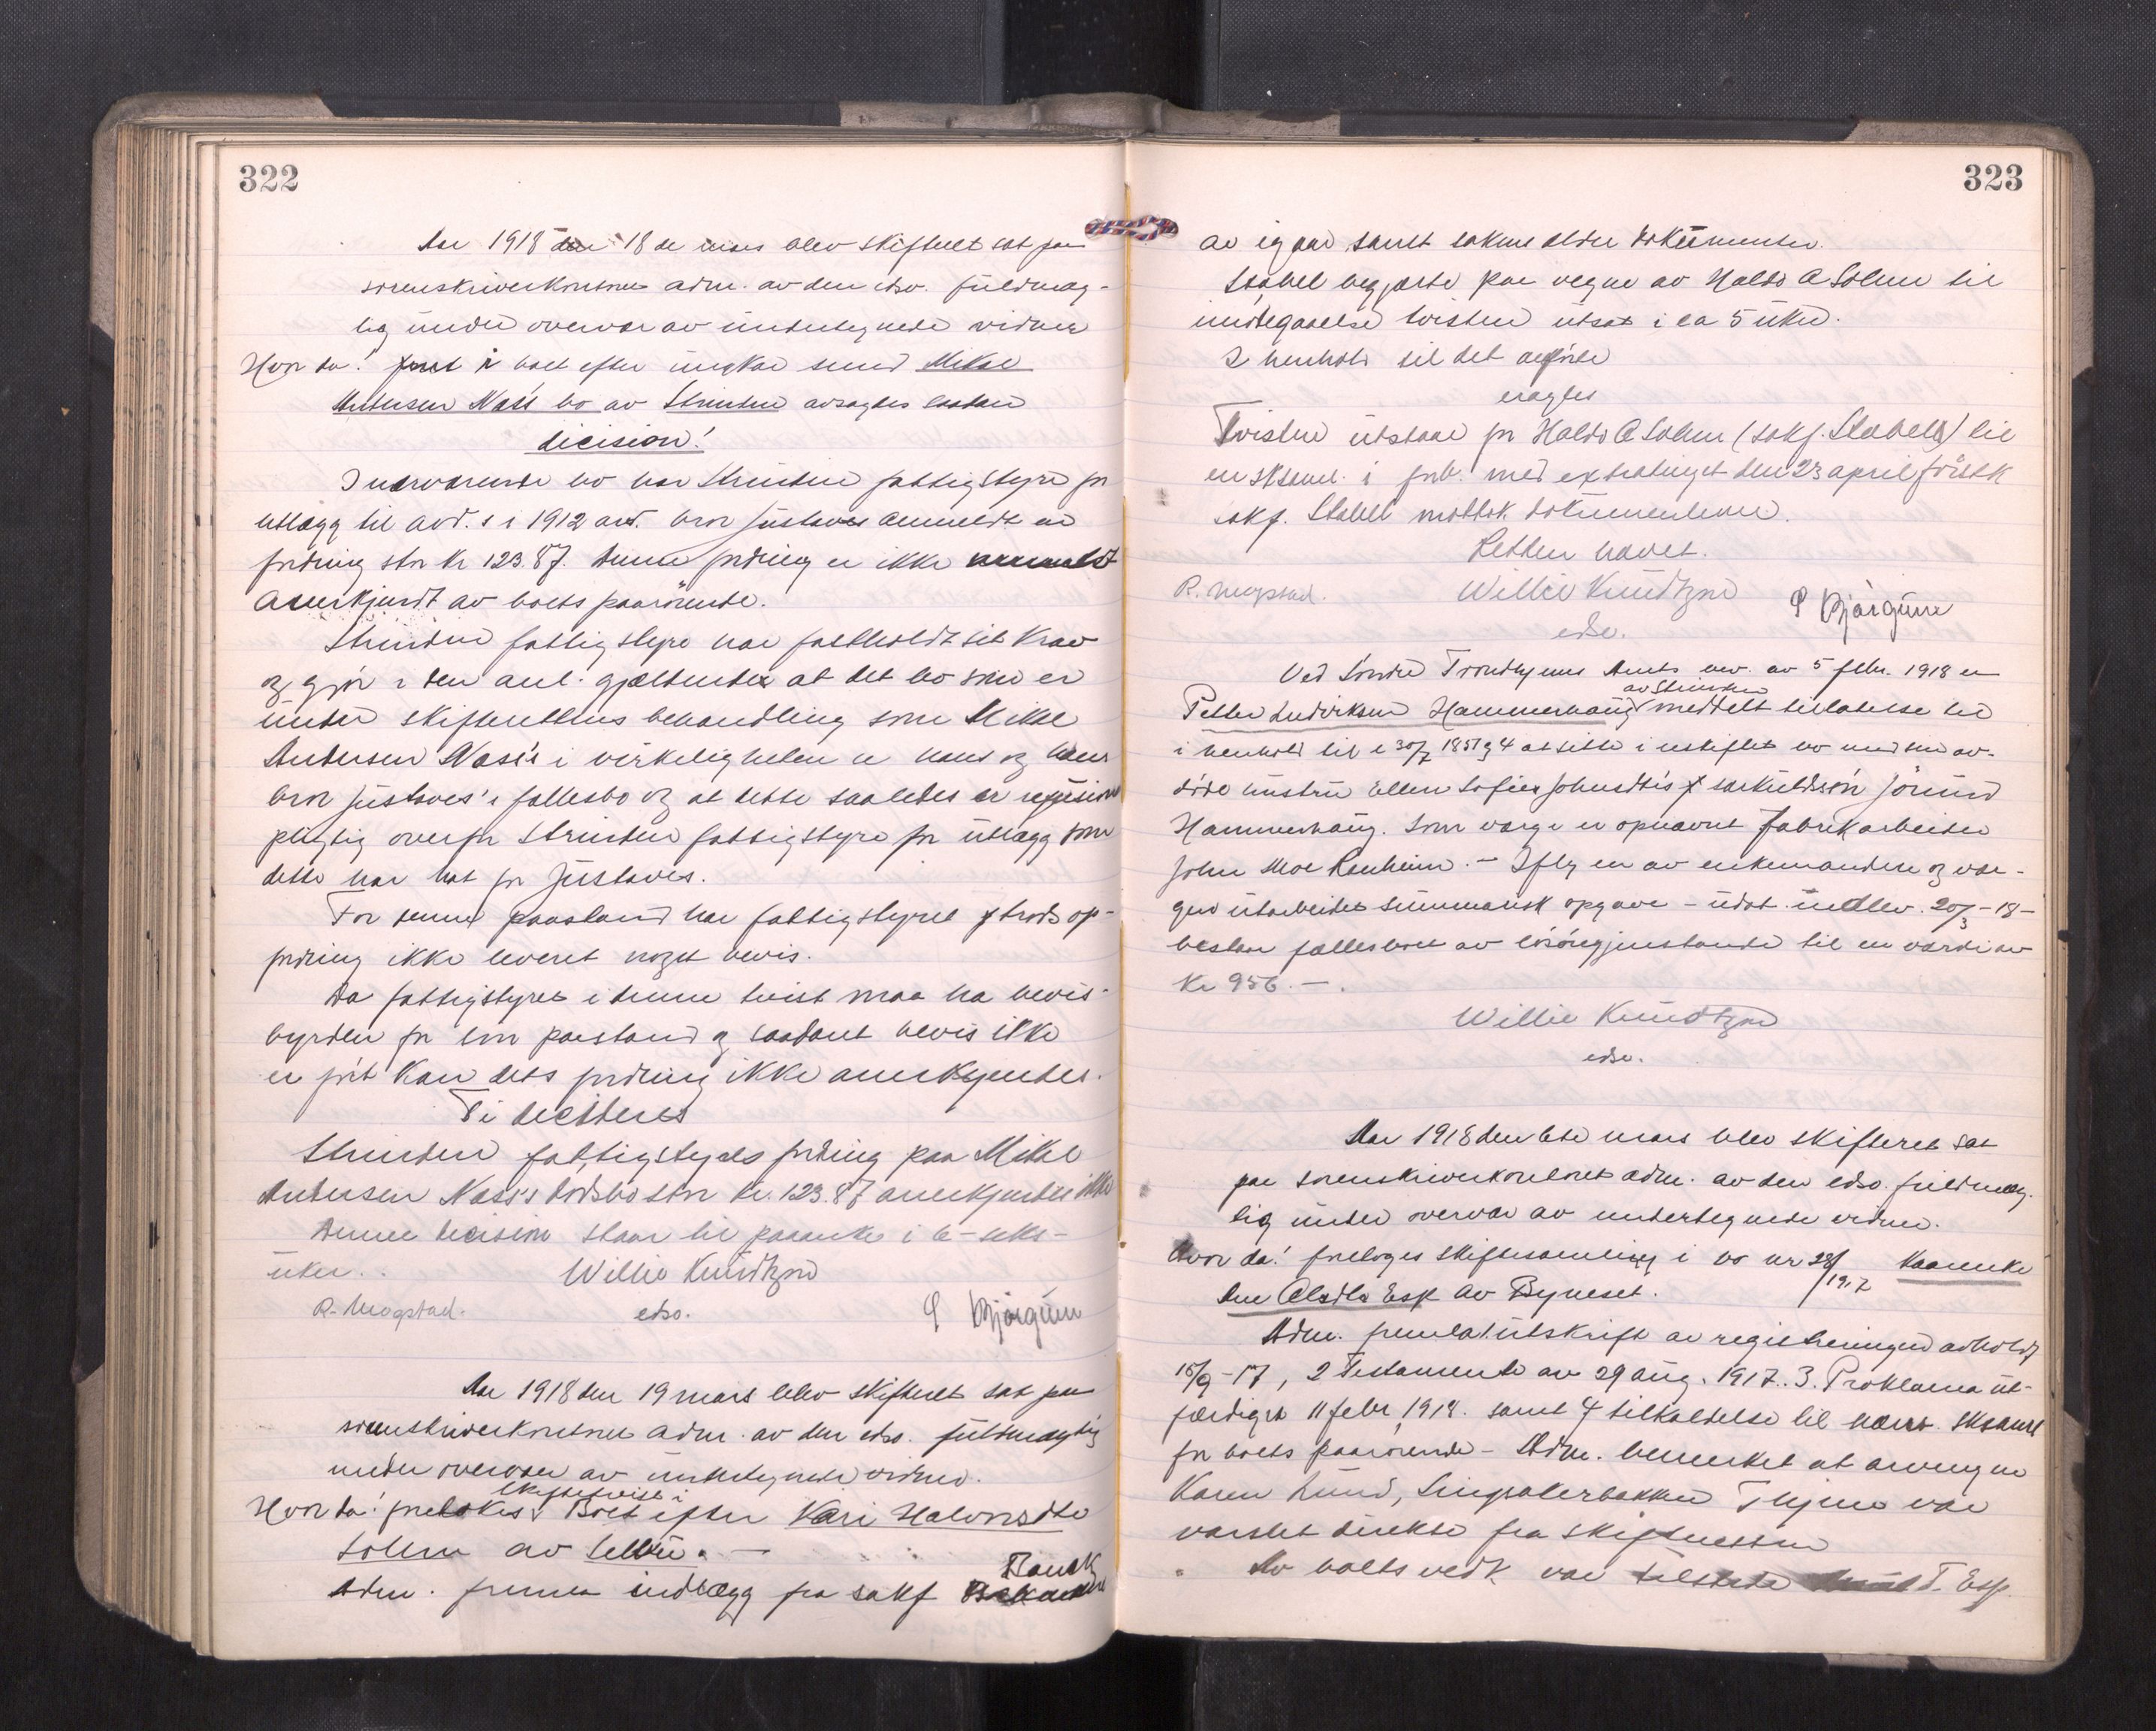 322
Aar 1918 den 18de mars blev skifteret sat paa
sorenskriverkontoret adm. av den edsv. fuldmæg-
tig under overvær av undertegnede vidner
Hvor da! foret i boet efter ungkar smed Mikal
Andersen Næss bo av Strinden avsagdes saadan
dicision!
I nærværende bo har Strinden fattigstyre for
utlægg til avd.s i 1912 avd. bror Gustaves anmeldt en
fordring stor kr 123.87. Denne fordring er ikke
anerkjendt av boets paarørende.
Strinden fattigstyre har fastholdt sit krav
og gjør i den anl. gjældende at det bo som er
under skifterettens behandling som Mikal
Andersen Næss's i virkeligheten er hans og hans
bror Gustaves's fællesbo og at dette saaledes er refusions
pligtig overfor Strinden fattigstyre for utlægg som
dette har hat for Gustaves.
For denne paastand har fattigstyret trods op-
fordring ikke leveret noget bevis.
Da fattigstyret i denne tvist maa ha bevis-
byrden for sin paastand og saadant bevis ikke
er ført kan dets fordring ikke anerkjendes.
Ti decideres
Strinden fattigstyres fordring paa Mikal
Andersen Næss's dødsbo stor kr. 123.87 anerkjendes ikke
Denne decision staar til paaanke i 6-seks-
uker.
Willie Knudtzon
R. Mogstad.
edsv.
P Bjørgum
Aar 1918 den 19 mars blev skifteret sat paa
sorenskriverkontoret adm. av den edsv. fuldmægtig
under overvær av undertegnede vidner.
skiftetvist i
Hvor da! foretokes Boet efter Kari Halvorsdtr
Solem av Selbu. —
Bauck
Adm. fremla indlægg fra sakf
323
av igaar samt sakens ældre dokumenter.
Stabel begjærte paa vegne av Haldo A Solem til
imøtegaaelse tvisten utsat i ca 5 uker.
I henhold til det anførte
eragtes
Tvisten utstaar for Haldo A Solem (sakf. Stabell) til
en sksaml. i forb. med extratinget den 23 april førstk
sakf. Stabell mottok dokumenterne.
Retten hævet.
R. Mogstad.
Willie Knudtzon
P Bjørgum
edsv.
Ved Søndre Trondhjems Amts bev. av 5 febr. 1918 er
av Strinden
Petter Ludviksen Hammerhaug meddelt tilladelse til
i henhold til l 30/7 1851 § 4 at sitte i uskiftet bo med sin av-
døde hustru Ellen Sofie Johnsdtr's særkuldssøn Jörund
Hammerhaug. Som værge er opnævnt fabrikarbeider
John Moe Ranheim. — Ifølg en av enkemanden og vær-
gen utarbeidet summarisk opgave - udat. indlev. 20/3-18-
bestaar fællesboet av løsøregjenstande til en værdi av
Kr 956. —.
Willie Knudtzon
edsv.
Aar 1918 den 6te mars blev skifteret sat
paa sorenskriverkontoret adm. av den edsv. fuldmæg-
tig under overvær av undertegnede vidner.
Hvor da! foretoges skiftesamling i bo nr 28/1917
Ane Olsdtr Esp av Byneset.
Adm. fremla 1. utskrift av registreringen avholdt
15/9-17, 2 Testamente av 29 aug. 1917. 3. Proklama ut-
færdiget 11 febr 1918. samt 4 tilkaldelse til nærv. sksaml
for boets paarørende - Adm. bemerket at arvingen
Karen Lund, Singsakerbakken Thjem var
varslet direkte fra skifteretten
Av boets vedk var tilstede T. Esp.